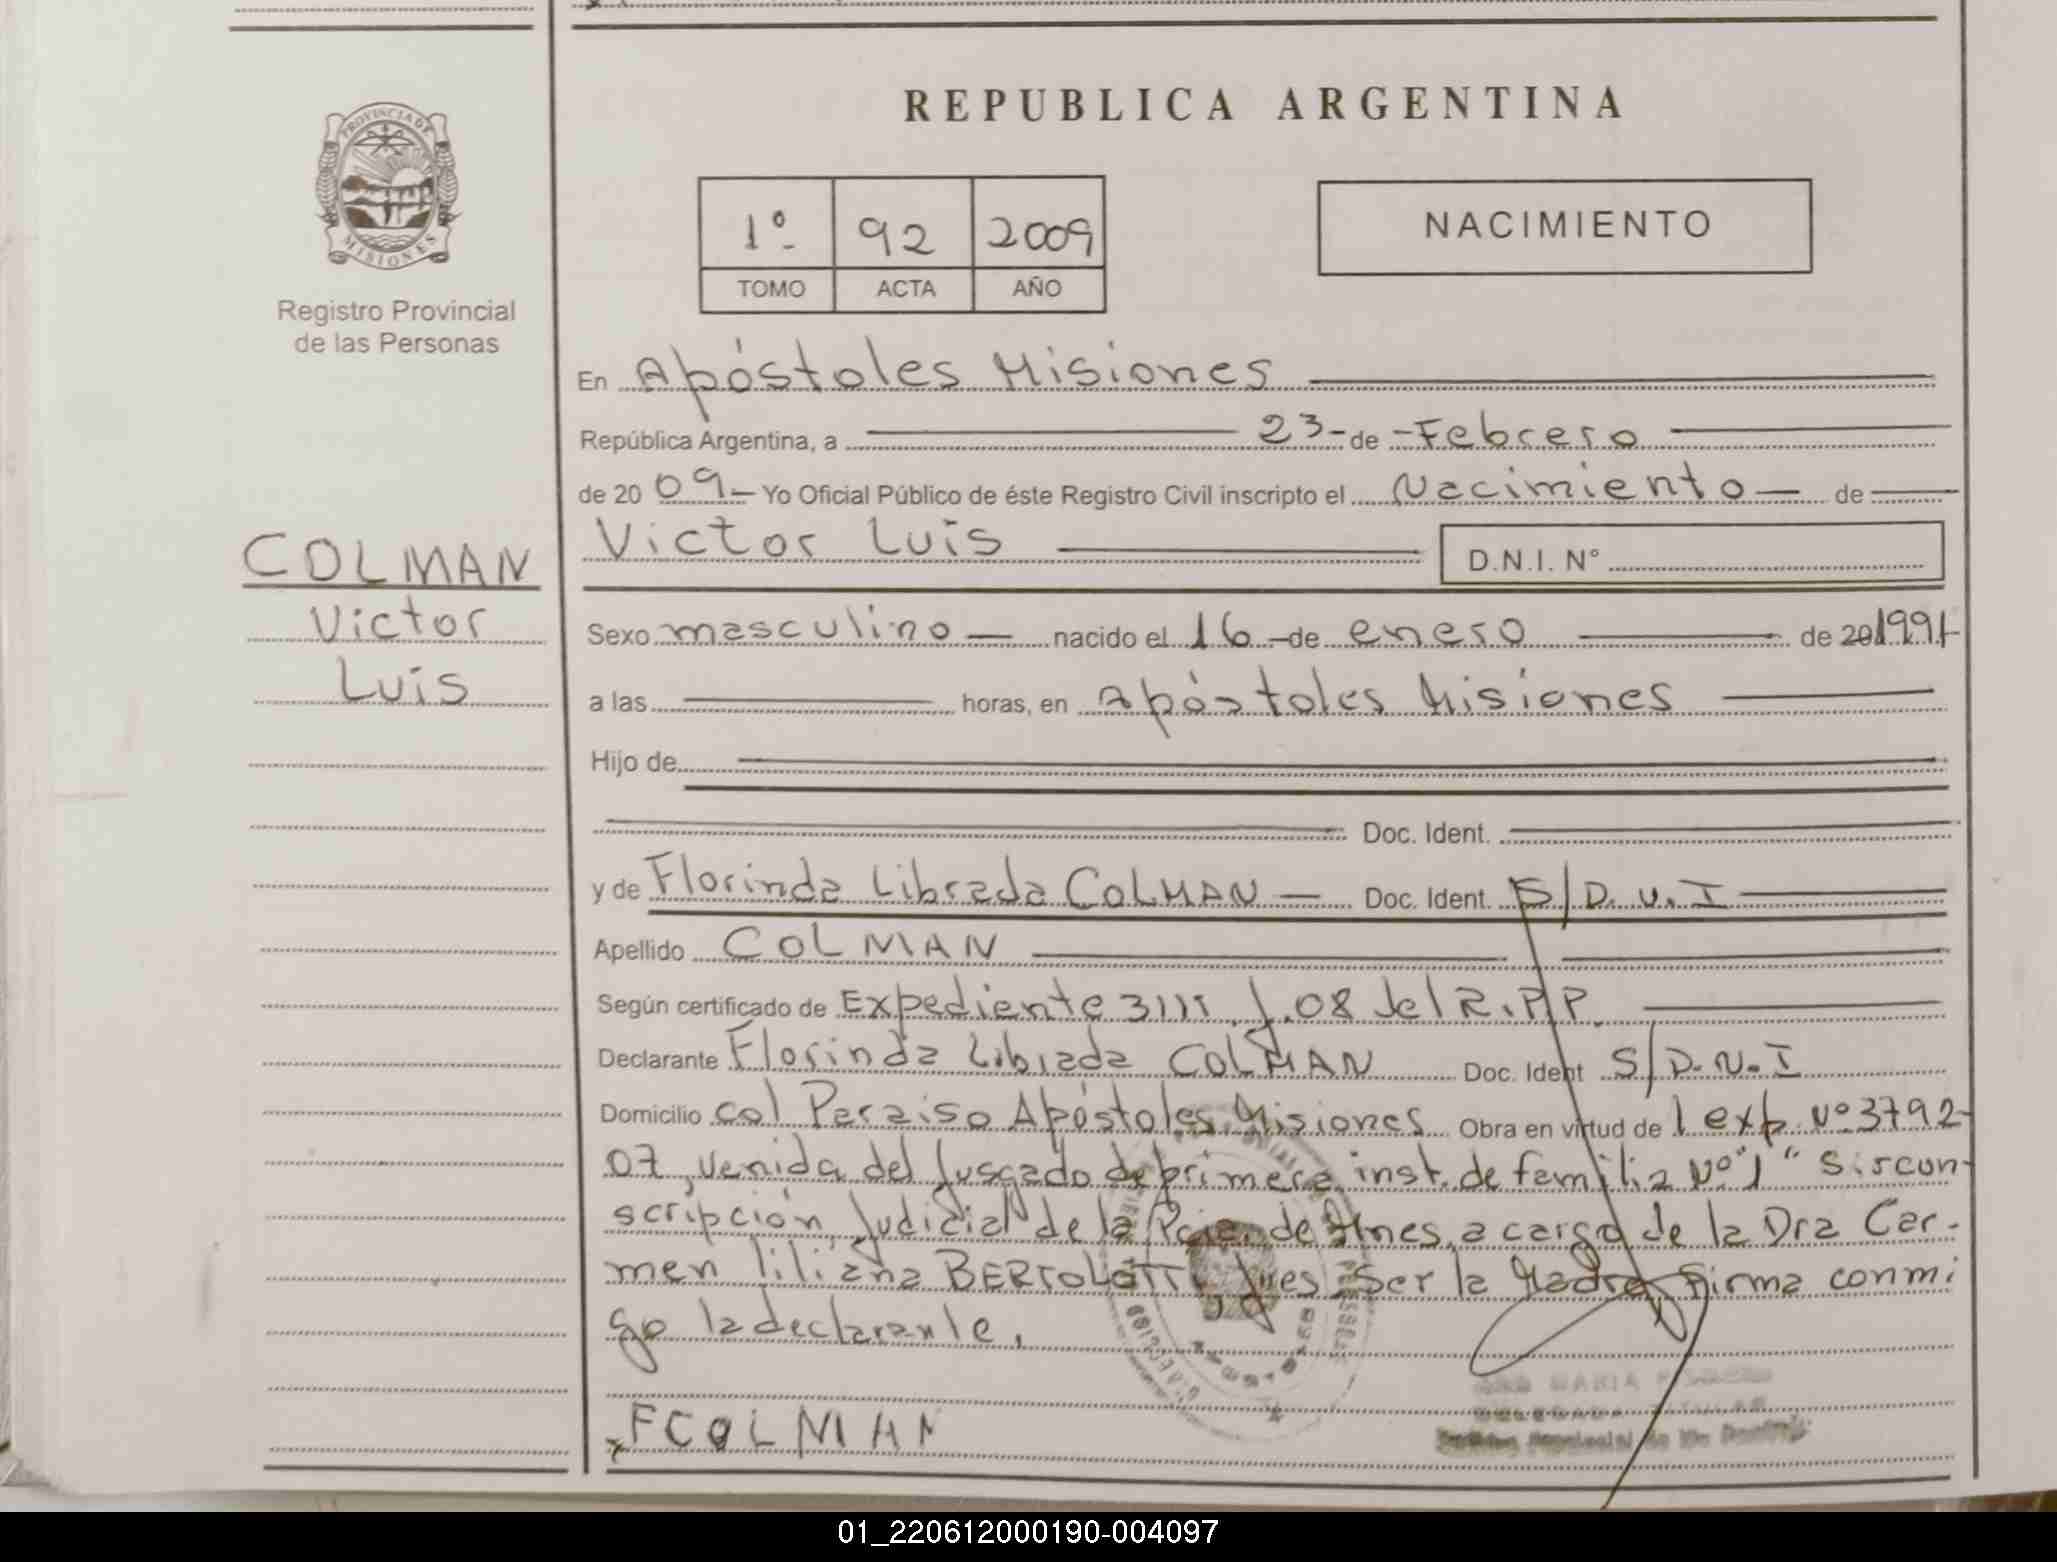 REPUBLICA ARGENTINA
PROVINCIA DE
MISIONES
Registro Provincial
de las Personas
1º 92 2009
TOMO ACTA AÑO
NACIMIENTO
En Apóstoles Misiones
República Argentina, a 23 de Febrero
de 2009 Yo Oficial Público de éste Registro Civil inscripto el Nacimiento de
COLMAN
Victor
Luis
Victor Luis D.N.I. Nº
Sexo masculino nacido el 16 de enero de 201991
a las horas, en Apóstoles Misiones
Hijo de
Doc. Ident.
y de Florinda Librada COLMAN Doc. Ident. S/D.N.I
Apellido COLMAN
Según certificado de Expediente 3111 J.08 del R.P.P.
Declarante Florinda Librada COLMAN Doc. Ident S/D.N.I
Domicilio col Paraiso Apóstoles Misiones Obra en virtud de l exp. Nº 3792-
07, venida del Jusgado de primera inst. de familia Nº "1" Sircon-
scripción Judicial de la Pcia. de Mnes, a cargo de la Dra Car-
men liliana BERTOLOTTI, Jues Ser la Madre, firma conmi
go la declarante.
x FCOLMAN
01_220612000190-004097